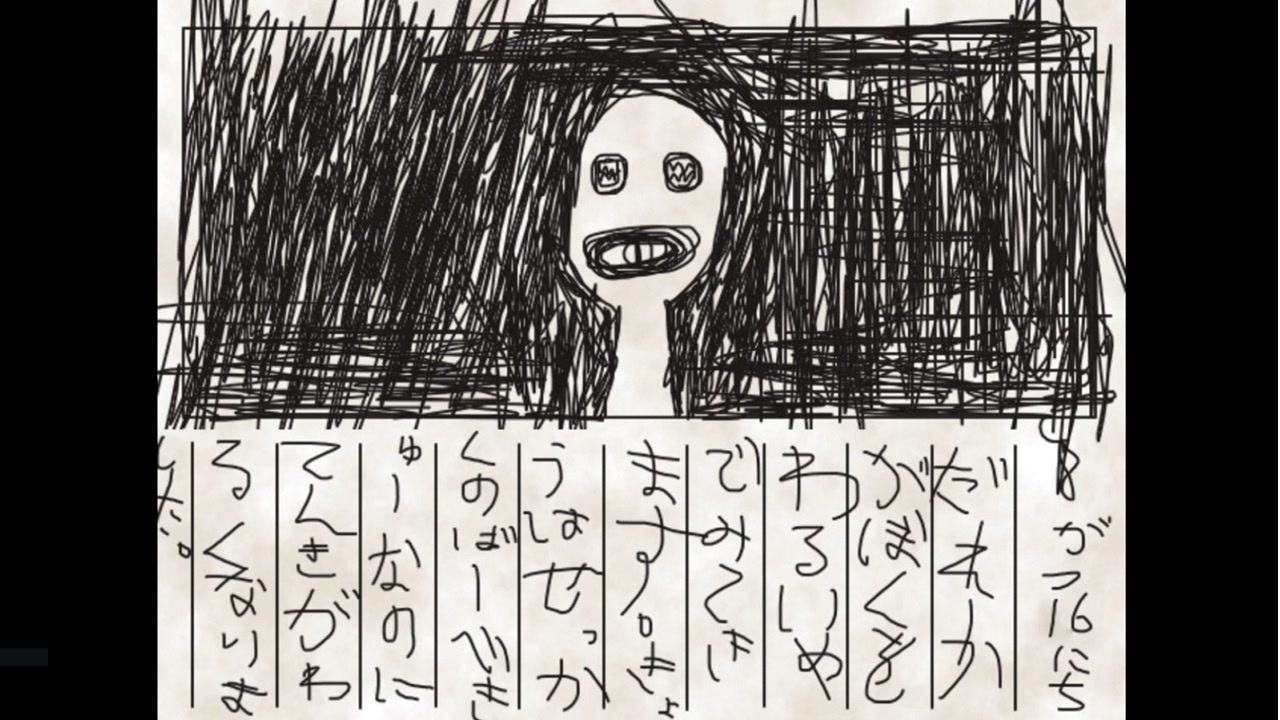 8がつ16にち
だれか
がぼくを
わるいめ
でみてき
ます。きょ
うはせっか
くのばーべき
ゅーなのに
てんきがわ
るくなりま
した。